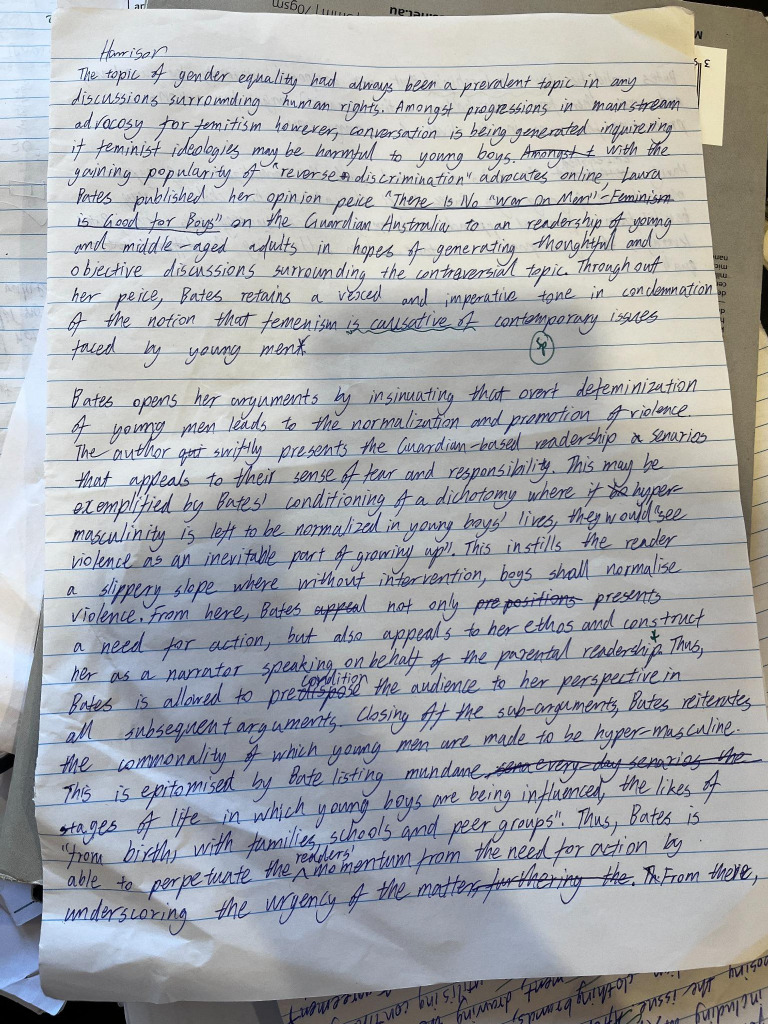 Harrison
The topic of gender equality had always been a prevalent topic in any
discussions surrounding human rights. Amongst progressions in mainstream
advocosy for femitism however, conversation is being generated inquirering
if feminist ideologies may be harmful to young boys. Amongst t with the
gaining popularity of "reverse discrimination" advocates online, Laura
Bates published her opinion peice "There Is No "War On Men" - Feminism
is Good for Boys" on the Guardian Australia to an readership of young
and middle-aged adults in hopes of generating thoughtful and
objective discussions surrounding the contraversial topic. Throughout
her peice, Bates retains a vexed and imperative tone in condemnation
of the notion that femenism is causative of contemporary issues
faced by young men.
Bates opens her arguments by insinuating that overt defeminization
of young men leads to the normalization and promotion of violence.
The author swiftly presents the Guardian-based readership a senarios
that appeals to their sense of fear and responsibility. This may be
exemplified by Bates' conditioning of a dichotomy where if hyper-
masculinity is left to be normalized in young boys' lives, they would "see
violence as an inevitable part of growing up". This instills the reader
a slippery slope where without intervention, boys shall normalise
violence. From here, Bates appeal not only pre positions presents
a need for action, but also appeals to her ethos and construct
her as a narrator speaking on behalf of the parental readership. Thus,
condition
Bates is allowed to predispose the audience to her perspective in
all subsequent arguments. Closing off the sub-arguments, Bates reiterates
the commonality of which young men are made to be hyper-masculine.
This is epitomised by Bate listing mundane sena every-day senarios the
stages of life in which young boys are being influenced, the likes of
"from birth, with families, schools and peer groups". Thus, Bates is
readers'
able to perpetuate the momentum from the need for action by
underscoring the urgency of the matter, furthering the. From there,